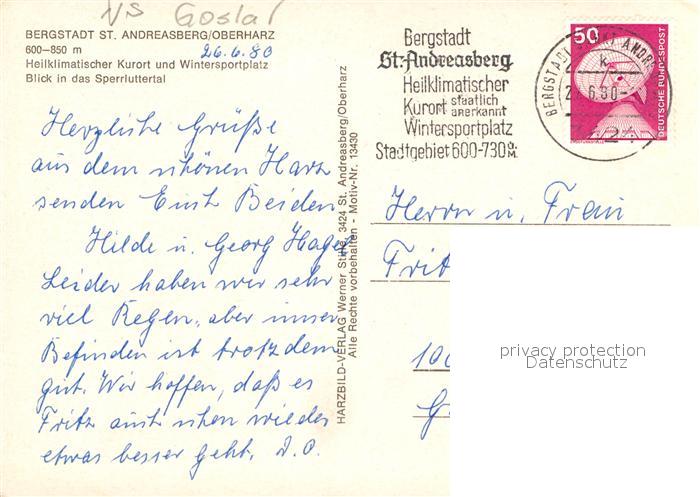 NS Goslar
BERGSTADT ST. ANDREASBERG/OBERHARZ
600-850 m
26.6.80
Heilklimatischer Kurort und Wintersportplatz
Blick in das Sperrluttertal
Herzliche Grüße
aus dem schönen Harz
senden Euch Beiden
Hilde u. Georg Hager
Leider haben wir sehr
viel Regen, aber unser
Befinden ist trotzdem
gut. Wir hoffen, daß es
Fritz auch schon wieder
etwas besser geht. D.O.
HARZBILD-VERLAG Werner 3424 St. Andreasberg/Oberharz
Alle Rechte vorbehalten - Motiv-Nr. 13430
Bergstadt
St. Andreasberg
Heilklimatischer
Kurort staatlich anerkannt
Wintersportplatz
Stadtgebiet 600-730 ü. M.
BERGSTADT SANKT ANDRE
50
DEUTSCHE BUNDESPOST
Herrn u. Frau
Fritz
100
G
privacy protection
Datenschutz